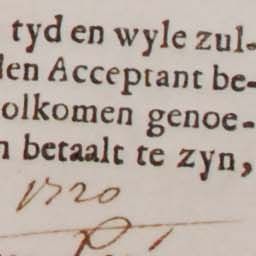 tyd en wyle zul-
len Acceptant be-
olkomen genoe-
n betaalt te zyn,
1720